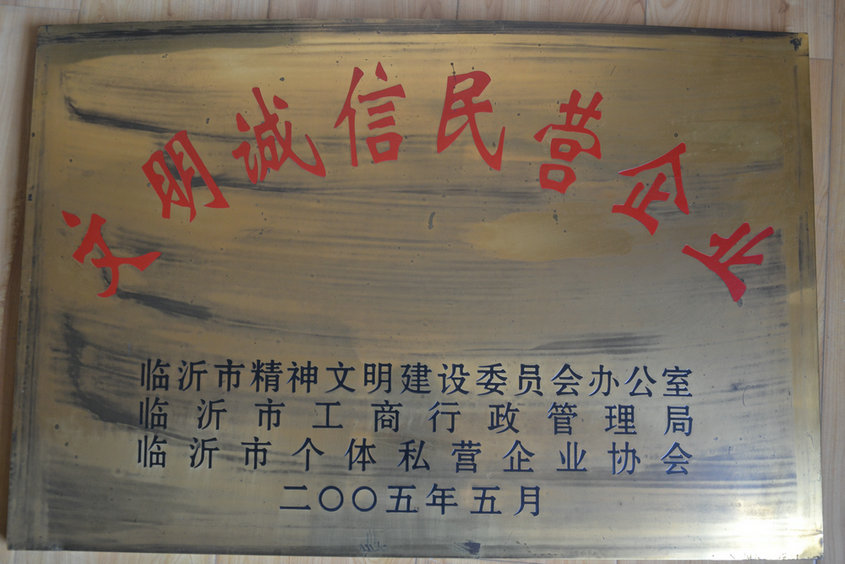 文明诚信民营企业
临沂市精神文明建设委员会办公室
临沂市工商行政管理局
临沂市个体私营企业协会
二〇〇五年五月